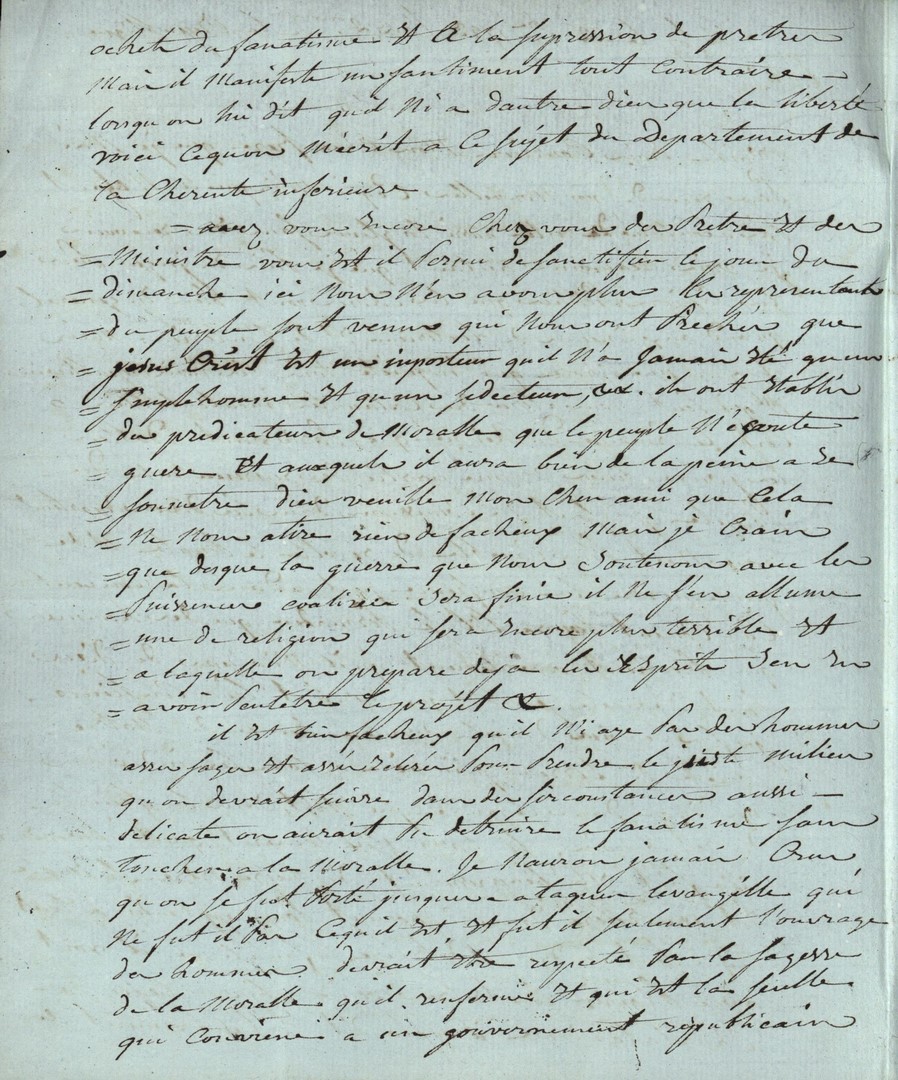 ochete du fanatisme et a la supression de pretres
mais il manifeste un santiment tout contraire –
lorsqu on lui dit quil ni a dautre dieu que la liberté
voici cequon mécrit a ce sujét du Departement de
la Cherente inferieure
= avez vous encore chez vous des Pretre et des
= Ministre vous est il Permi de sanctifier le jour du
= dimanche ici nous n'en avons plus les representants
= du peuple sont venus qui nous ont Préchés que
= jesus Crist est un inposteur qu'il n'a jamais été qu un
= simple homme et qu un seducteur, &&. ils ont établis
= du predicateurs de Moralle que le peuple n'écoute
= guere et auxquels il aura bien de la peine a se
= soumetre dieu veuille mon Cher ami que Cela
= ne nous atire rien de facheux mais je Crain
= que desque la guerre que nous soutenons avec les
= Puissences coalisées sera finie il ne s'en allume
= une de religion qui sera encore plus terrible et
= a laquelle on prepare deja les Esprits sen en
= avoir Peutetre le projét &.
il est bien facheux qu'il ni aye Pas des hommes
assés sages et assés eclerés Pour Prendre le juste milieu
qu on devrait suivre dans des sirconstances aussi –
delicate on aurait Pu detruire le fanatisme sans
toucher a la Moralle. Je naurois jamais Cru
qu on se fut Porté jusques a ataquer levangélle qui
ne fut il Pas Cequ'il est et fut il seulement l'ouvrage
des hommes devrait etre respecté Par la sagesse
de la Moralle qu il renferme et qui est la seulle
qui Conviene a un gouvernement republicain